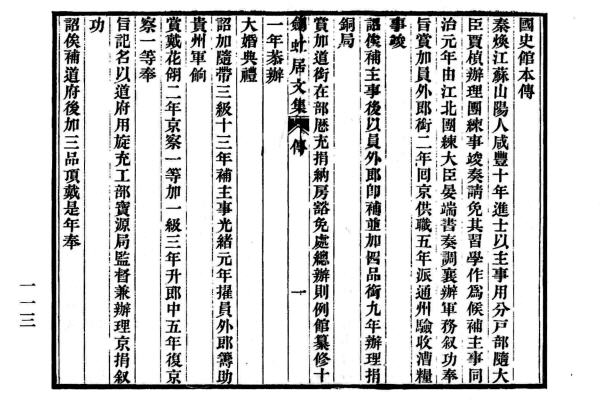 國史館本傳
秦煥江蘇山陽人咸豐十年進士以主事用分戶部隨大
臣賈楨辦理團練事竣奏請免其習學作爲候補主事同
治元年由江北團練大臣晏端書奏調襄辦軍務叙功奉
旨賞加員外郎銜二年回京供職五年派通州驗收漕糧
事竣
詔俟補主事後以員外郎卽補並加四品銜九年辦理捐
銅局
賞加道銜在部歷充捐納房豁免處總辦則例館纂修十
劍虹居文集 傳 一
一年恭辦
大婚典禮
詔加隨帶三級十三年補主事光緒元年擢員外郎籌助
貴州軍餉
賞戴花翎二年京察一等加一級三年升郎中五年復京
察一等奉
旨記名以道府用旋充工部寶源局監督兼辦理京捐叙
功
詔俟補道府後加三品頂戴是年奉
一一三